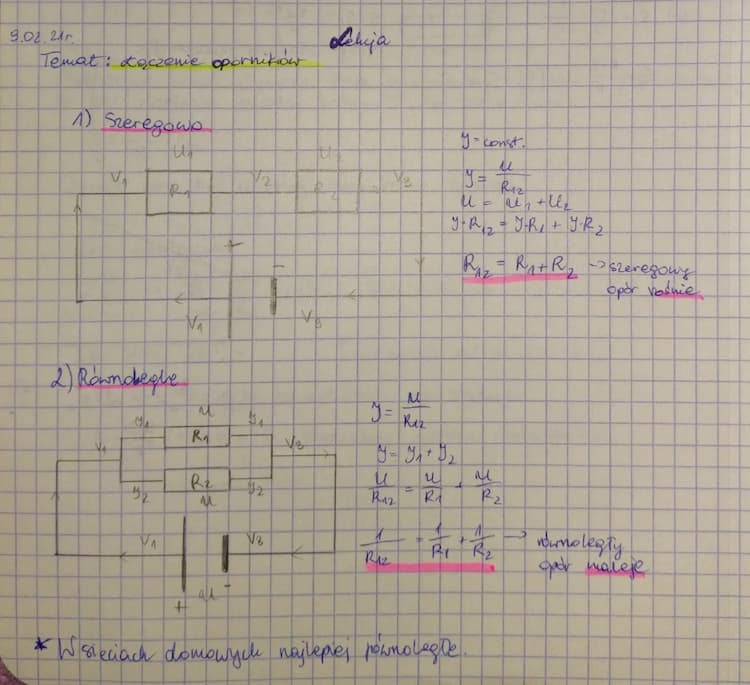 9.02.21r.
Lekcja
Temat: Łączenie oporników
1) Szeregowo
U1 U2
V1 R1 V2 R2 V3
+ -
V1 V3
J = const.
J = U/R12
U = U1 + U2
J·R12 = J·R1 + J·R2
R12 = R1 + R2 → szeregowy
opór rośnie
2) Równoległe
J1 U J1
V1 R1 V3
R2
J2 U J2
V1 V3
+ U -
J = U/R12
J = J1 + J2
U/R12 = U/R1 + U/R2
1/R12 = 1/R1 + 1/R2 → równoległy
opór maleje
* W sieciach domowych najlepiej równoległe.